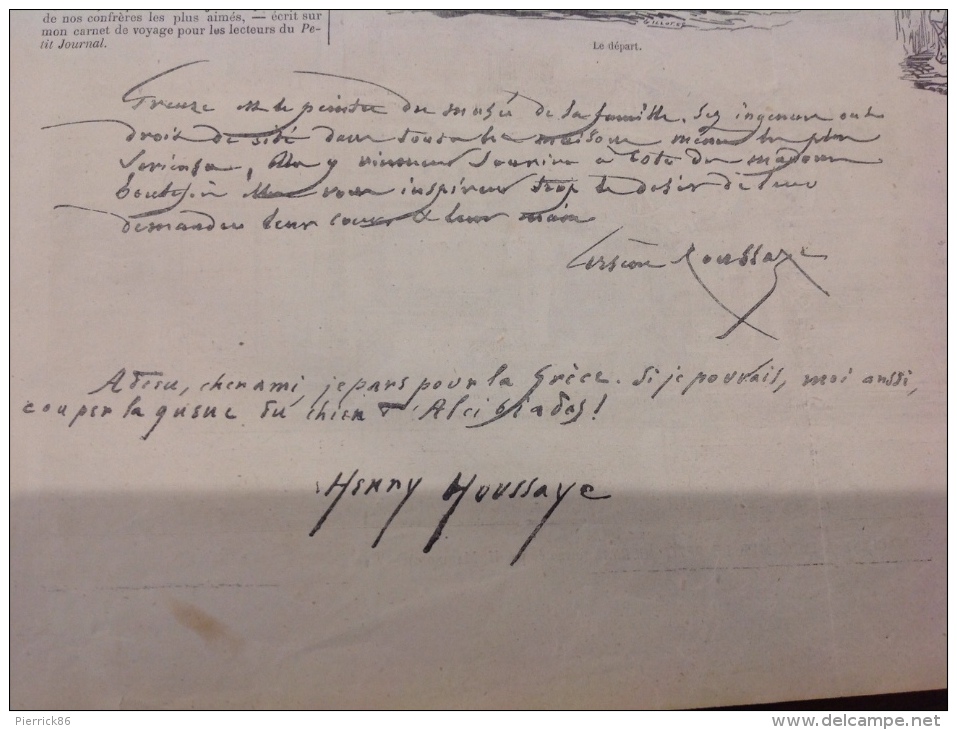 de nos confrères les plus aimés, — écrit sur
mon carnet de voyage pour les lecteurs du Pe-
tit Journal.
Le départ.
Greuze est le peintre du musée de la famille. Ses ingenues ont
droit de cité dans toutes les maisons même les plus
sourire à coté de madame
vous inspirer trop le desir de leur
demander leur coeur & leur main
Arsène Houssaye
Adieu, cher ami, je pars pour la Grèce. Si je pouvais, moi aussi,
couper la queue du chien d'Alcibiades!
Henry Houssaye
Pierrick86
www.delcampe.net